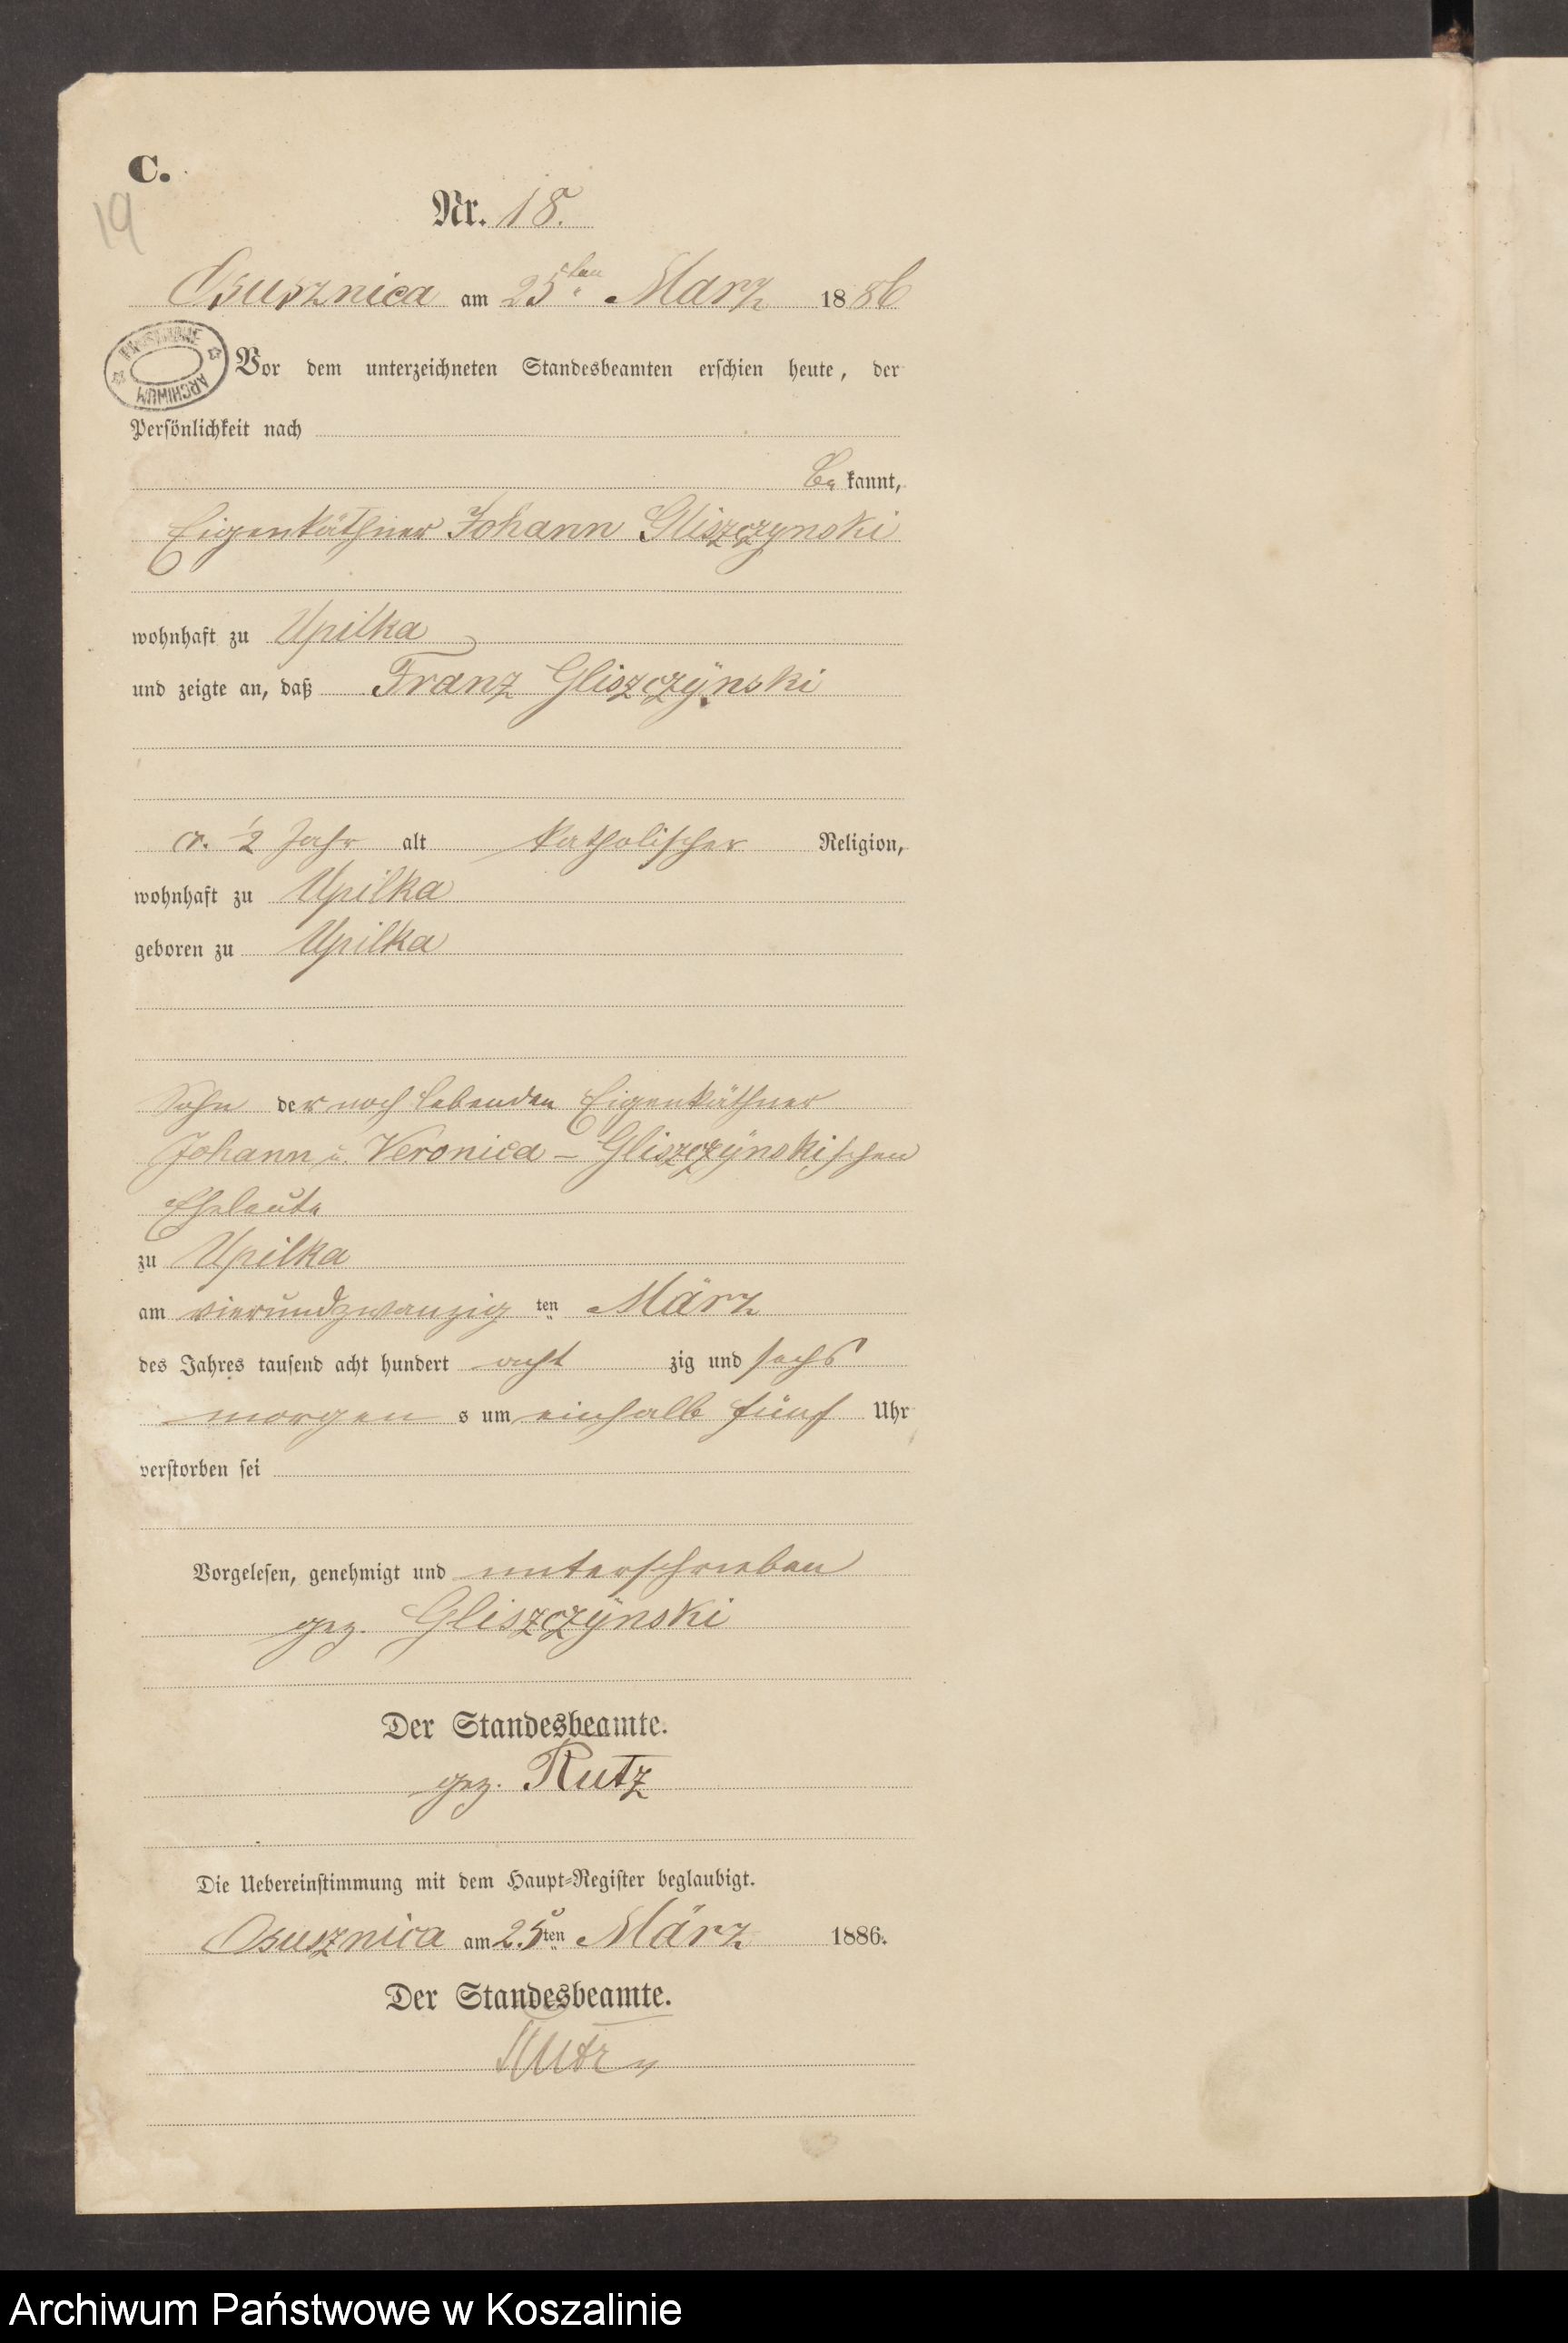 C.
19
Nr. 18.
Osusznica am 25ten März 1886
PAŃSTWOWE ARCHIWUM
Vor dem unterzeichneten Standesbeamten erschien heute, der
Persönlichkeit nach
be kannt,
Eigenkäthner Johann Gliszczynski
wohnhaft zu Upilka
und zeigte an, daß Franz Gliszczÿnski
½ Jahr alt katholischer Religion,
wohnhaft zu Upilka
geboren zu Upilka
Sohn der noch lebenden Eigenkäthner
Johann u. Veronica – Gliszczÿnskischen
Eheleute
zu Upilka
am vierundzwanzig ten März
des Jahres tausend acht hundert acht zig und sechs
morgen s um einhalb fünf Uhr
verstorben sei
Vorgelesen, genehmigt und unterschrieben
gez. Gliszczÿnski
Der Standesbeamte.
gez. Rutz
Die Uebereinstimmung mit dem Haupt-Register beglaubigt.
Osusznica am 25ten März 1886.
Der Standesbeamte.
Rutz
Archiwum Państwowe w Koszalinie